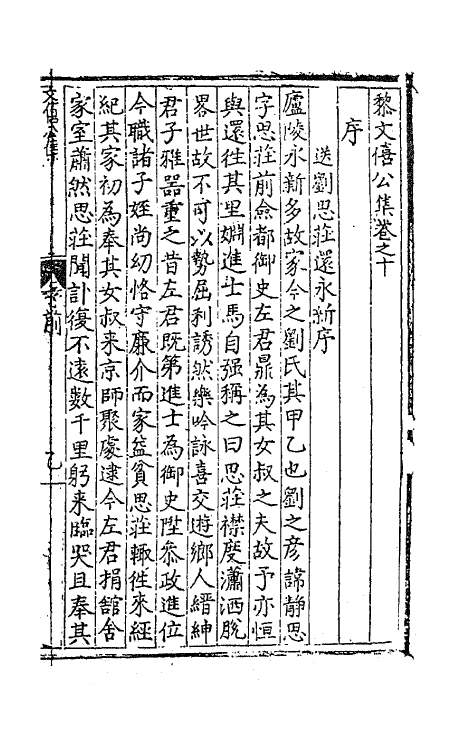 黎文僖公集卷之十
序
送劉思莊還永新序
廬陵永新多故家今之劉氏其甲乙也劉之彦諱静思
字思莊前僉都御史左君鼎為其女叔之夫故予亦恒
與還徃其里婣進士馬自强稱之曰思莊襟度瀟洒脱
畧世故不可以勢屈利誘然樂吟詠喜交遊鄉人縉紳
君子雅器重之昔左君既第進士為御史陞叅政進位
今職諸子姪尚幼恪守廉介而家益貧思莊輙徃來經
紀其家初為奉其女叔来京師聚處逮今左君捐舘舍
家室蕭然思莊聞訃復不遠數千里躬来臨哭且奉其
文僖公集
前
乙